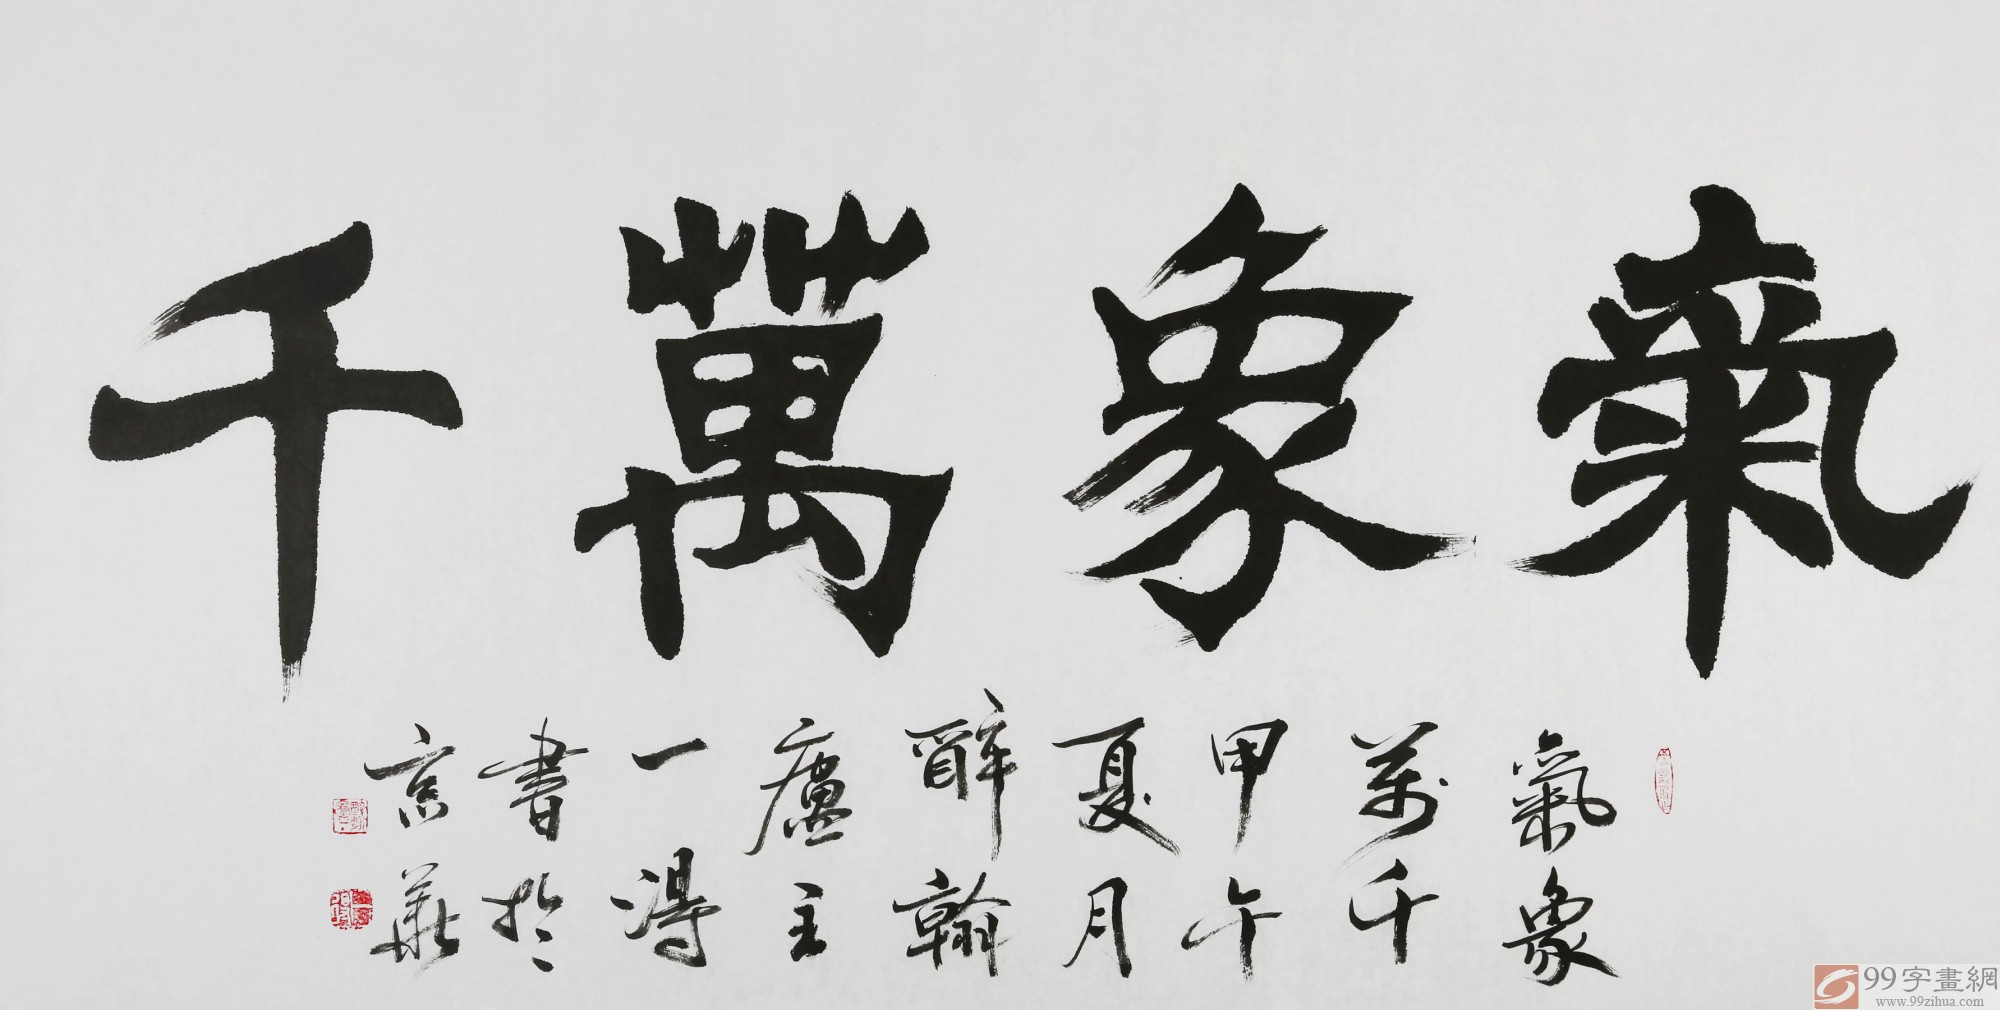 氣象萬千
氣象
萬千
甲午
夏月
醉翰
廬主
一得
書於
京華
99字畫網
www.99zihua.com